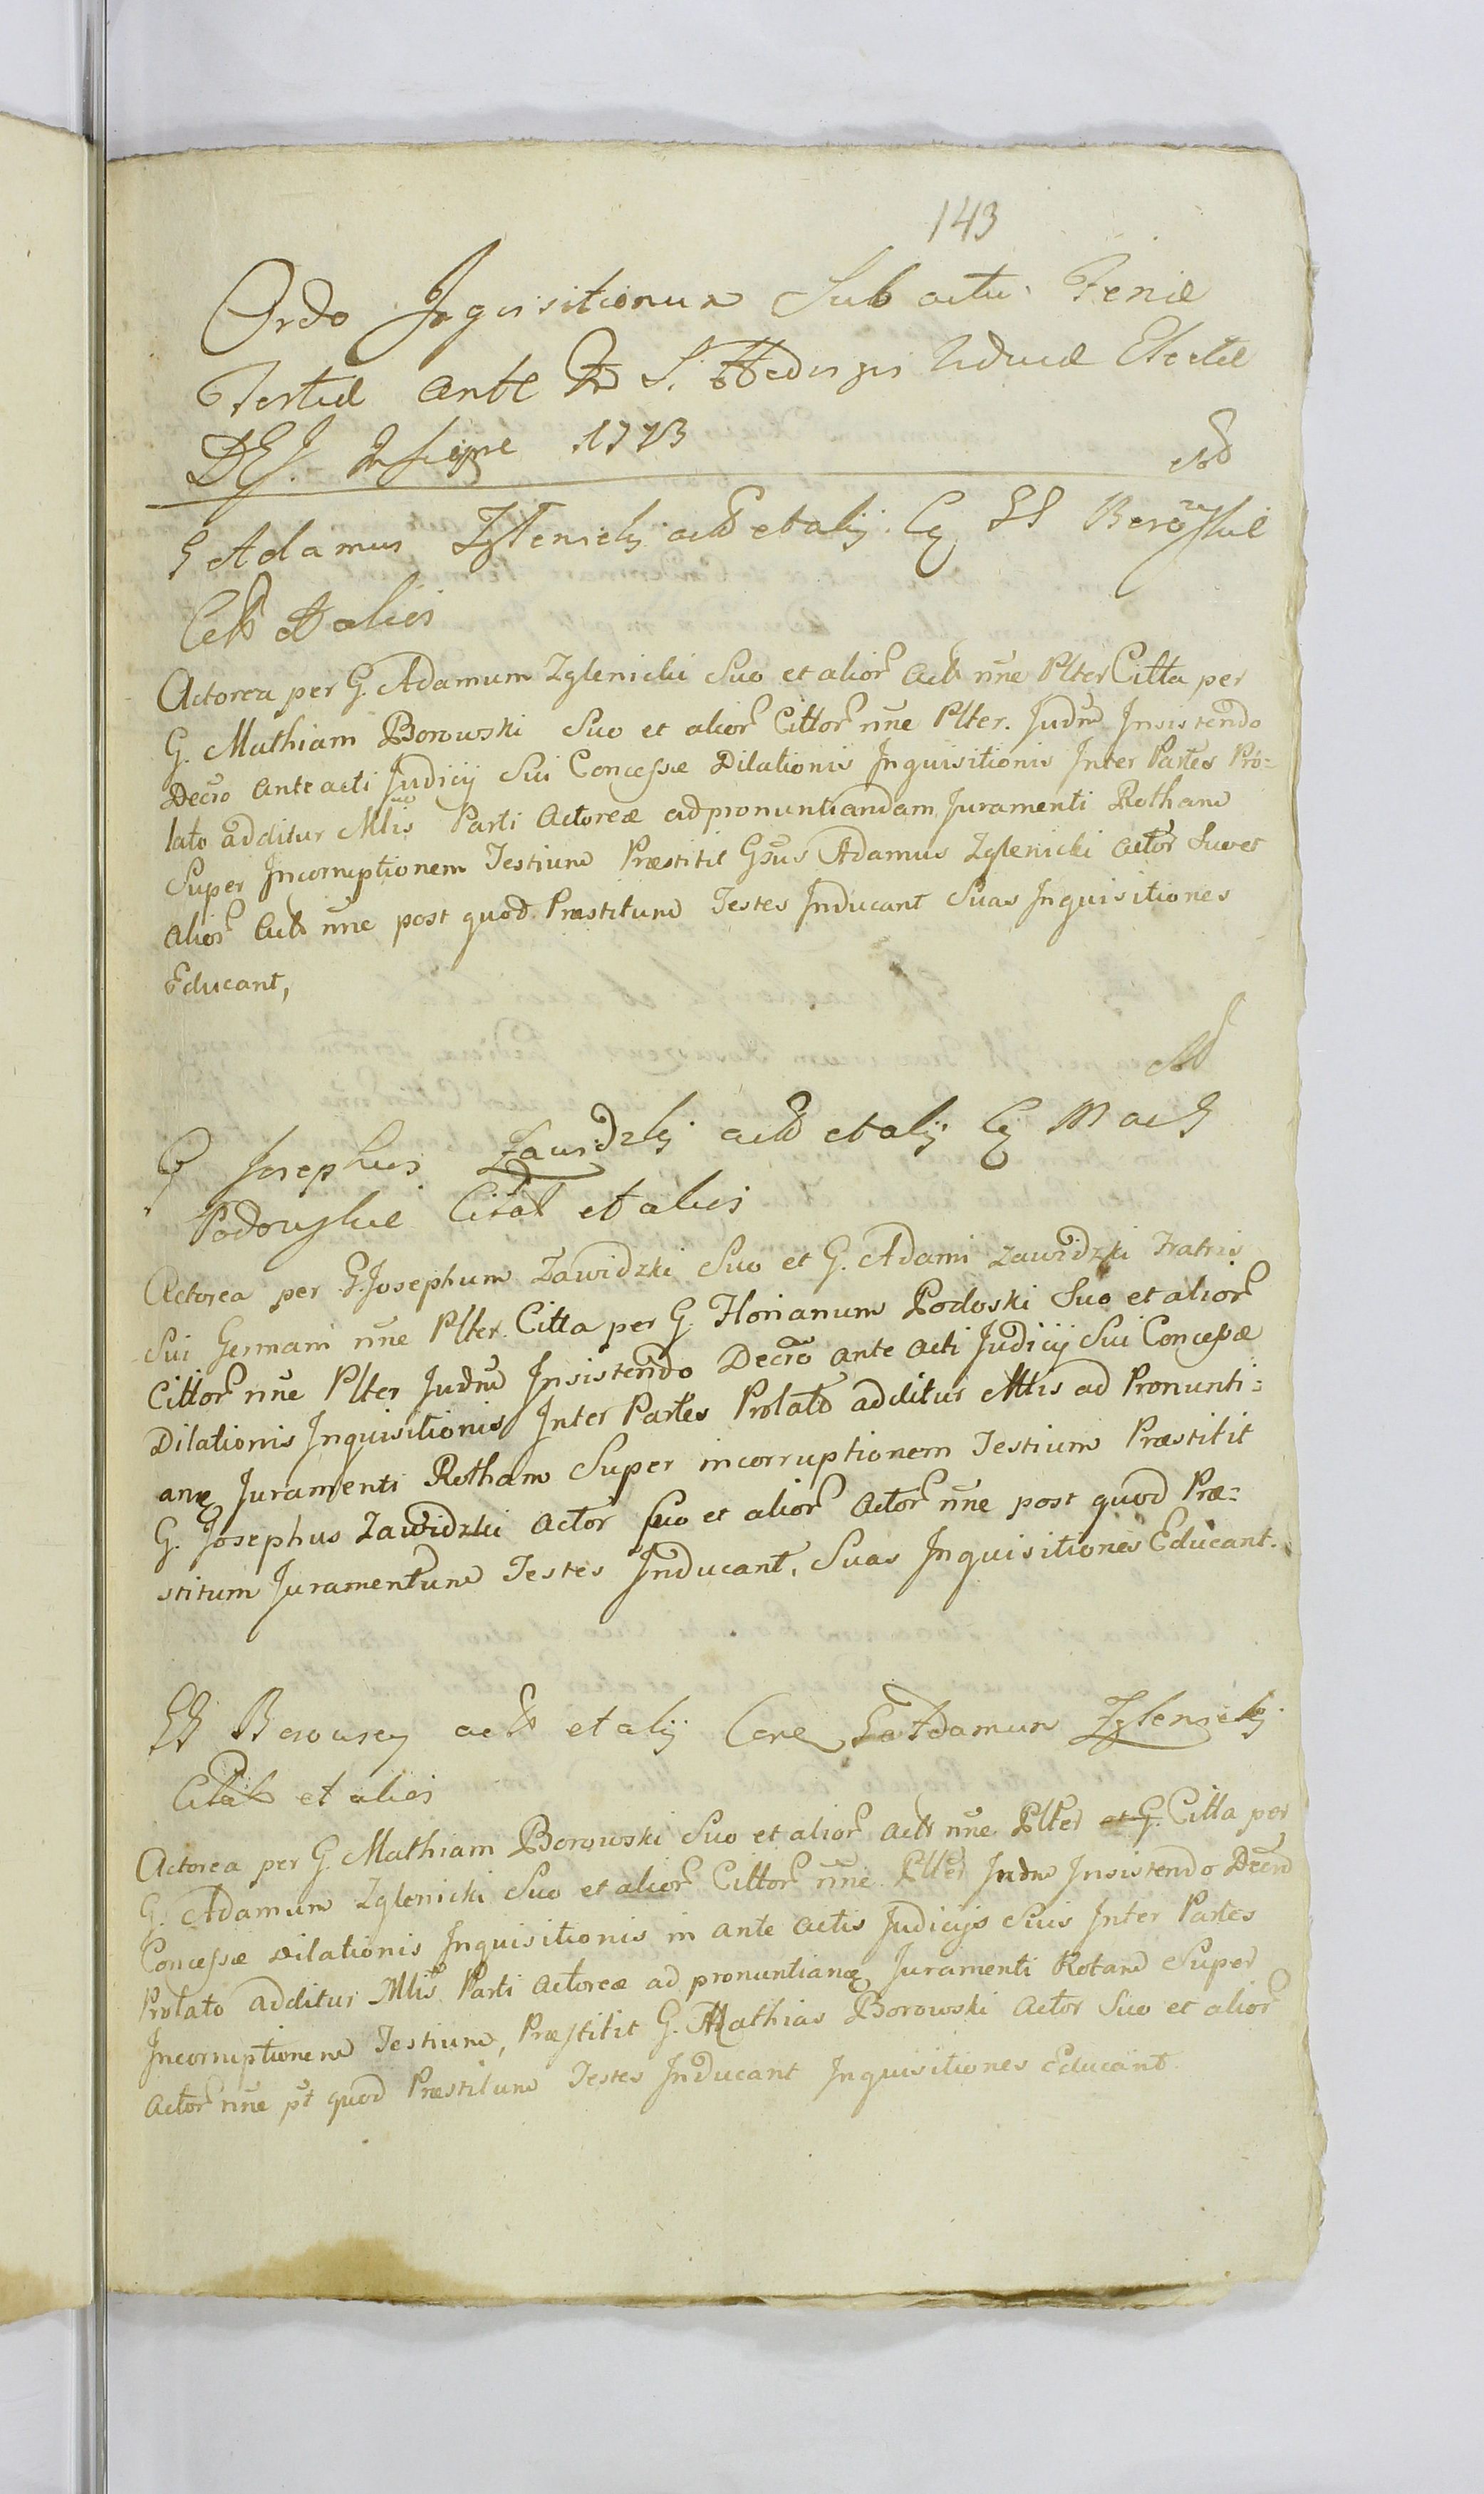 143
Ordo Inquisitionum Sub actu Feriæ
Sextæ ante S. Hedvigis Viduæ Electæ
1773
G Adamus Zglenicki act et alij Cq GG Borowskie
Citt et alios
Actorea per G. Adamum Zglenicki Suo et alior Act nne Plter Citta per
G. Mathiam Borowski Suo et alior Cittor nne Plter. Judm Insistendo
Decro ante acti Judicij Sui Concessæ Dilationis Inquisitionis Inter Partes Pro=
lato additur Mlis Parti Actoreæ ad pronuntiandam Juramenti Rotham
Super Incorruptionem Testium Præstitit Gsus Adamus Zglenicki actor Suo et
alior Act nne post quod Præstitum Testes Inducant Suas Inquisitiones
Educant,
G Josephus Zawidzky act et alij Cq M ac G
Podoskie Citat et alios
Actorea per G. Josephum Zawidzki Suo et G. Adami Zawidzki Fratris
Sui Germani nne Plter. Citta per G. Florianum Podoski Suo et alior
Cittor nne Plter Judm Insistendo Decro ante acti Judicij Sui Concessæ
Dilationis Inquisitionis Inter Partes Prolato additur Mlis ad Pronunti=
anq Juramenti Rotham Super incorruptionem Testium Præstitit
G. Josephus Zawidzki Actor suo et alior Actor nne post quod Præ=
stitum Juramentum Testes Inducant, Suas Inquisitiones Educant.
GG Borowscy act et alij Conq G Adamum Zglenicky
Citat et alios
Actorea per G. Mathiam Borowski Suo et alior Act nne Plter et G. Citta per
G. Adamum Zglenicki Suo et alior Cittor nne Plter Judm Insistendo Decro
Concessæ Dilationis Inquisitionis in ante actis Judicijs Suis Inter Partes
Prolato additur Mlis Parti Actoreæ ad pronuntianq Juramenti Rotam Super
Incorruptionem Testium, Præstitit G. Mathias Borowski Actor Suo et alior
Actor nne pt quod Præstitum Testes Inducant Inquisitiones Educant